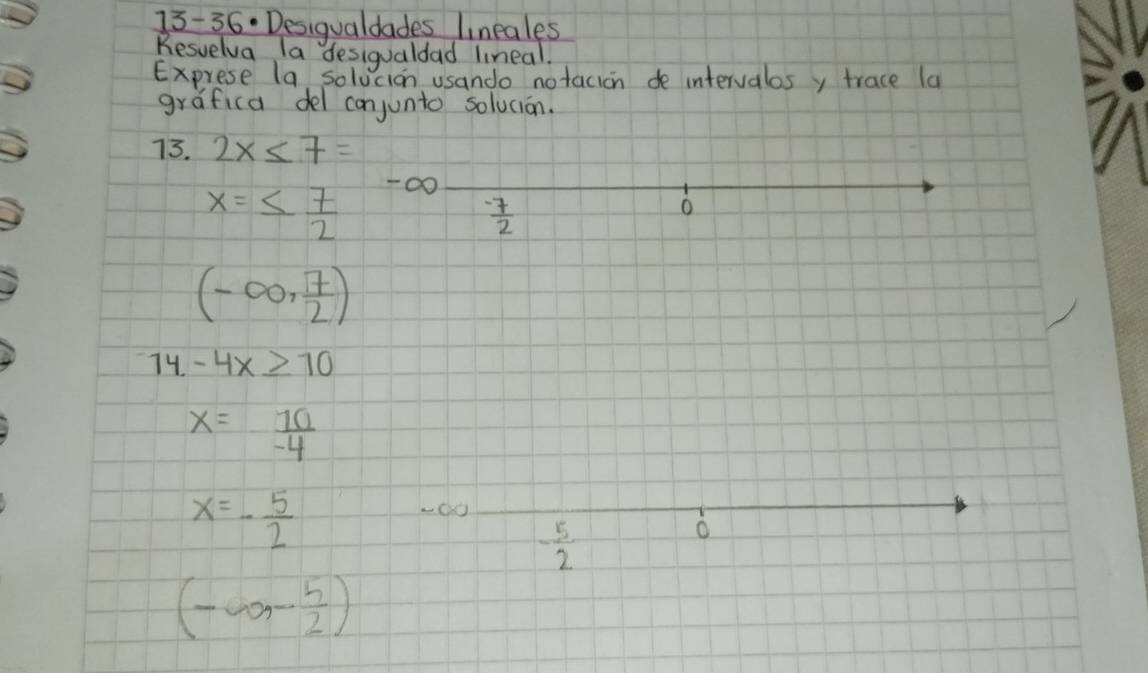 13-36• Desigualdades lineales
Resuelva la desigualdad lineal.
Exprese la solución usando notación de intervalos y trace la
gráfica del conjunto solución.
13. 2x ≤ 7 =
x = ≤ 7/2
-∞ -7/2 0
(-∞, 7/2)
14. -4x ≥ 10
x = 10/-4
x = -5/2
-∞ -5/2 0
(-∞, -5/2)